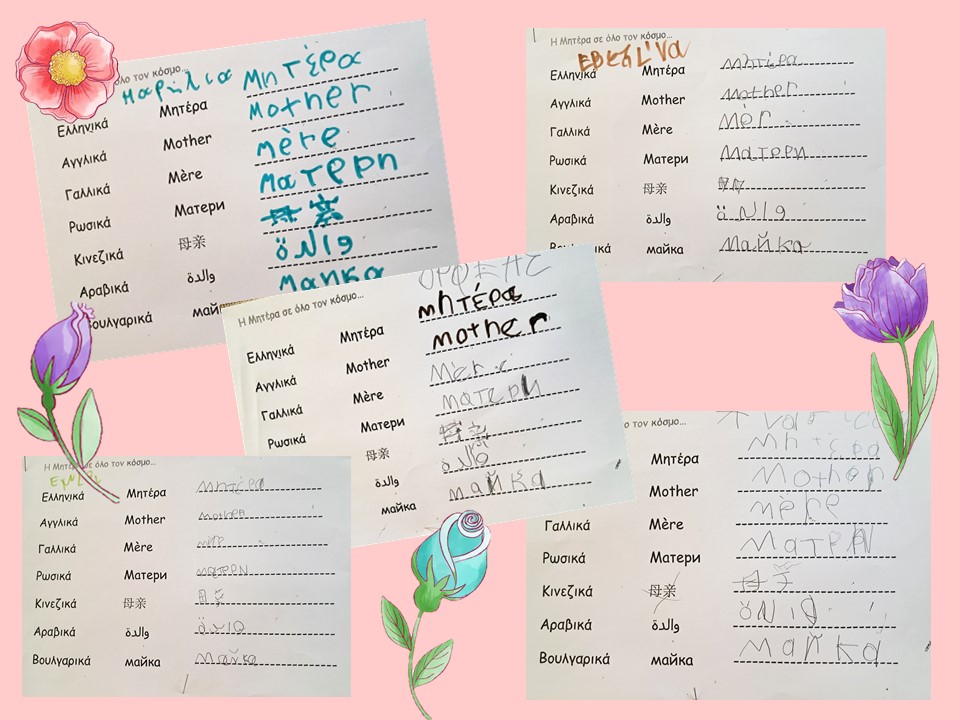 όλο τον κόσμο...
Μαρηλια
Ελληνικά Μητέρα Μητέρα
Αγγλικά Mother Mother
Γαλλικά Mère mère
Ρωσικά Матери Матери
Κινεζικά 母亲 母亲
Αραβικά والدة
Βουλγαρικά май майка
Η Μητέρα σε όλο τον κόσμο...
ΕΒΕΛΙΝΑ
Ελληνικά Μητέρα Μητέρα
Αγγλικά Mother Mother
Γαλλικά Mère Mèr
Ρωσικά Матери Матери
Κινεζικά 母亲
Αραβικά والدة
майка Майка
Η Μητέρα σε όλο τον κόσμο...
ΟΡΦΕΑΣ
Ελληνικά Μητέρα Μητέρα
Αγγλικά Mother mother
Γαλλικά Mère Mère
Ρωσικά Матери матери
母亲 母亲
والدة
майка майка
Η Μητέρα σε όλο τον κόσμο...
Ελληνικά Μητέρα Μητέρα
Αγγλικά Mother mother
Γαλλικά Mère
Ρωσικά Матери матери
Κινεζικά 母亲
Αραβικά والدة
Βουλγαρικά майка Майка
ο τον κόσμο...
Μητέρα Μητέρα
Mother Mother
Γαλλικά Mère mère
Ρωσικά Матери Матери
Κινεζικά 母亲
Αραβικά والدة
Βουλγαρικά майка майка